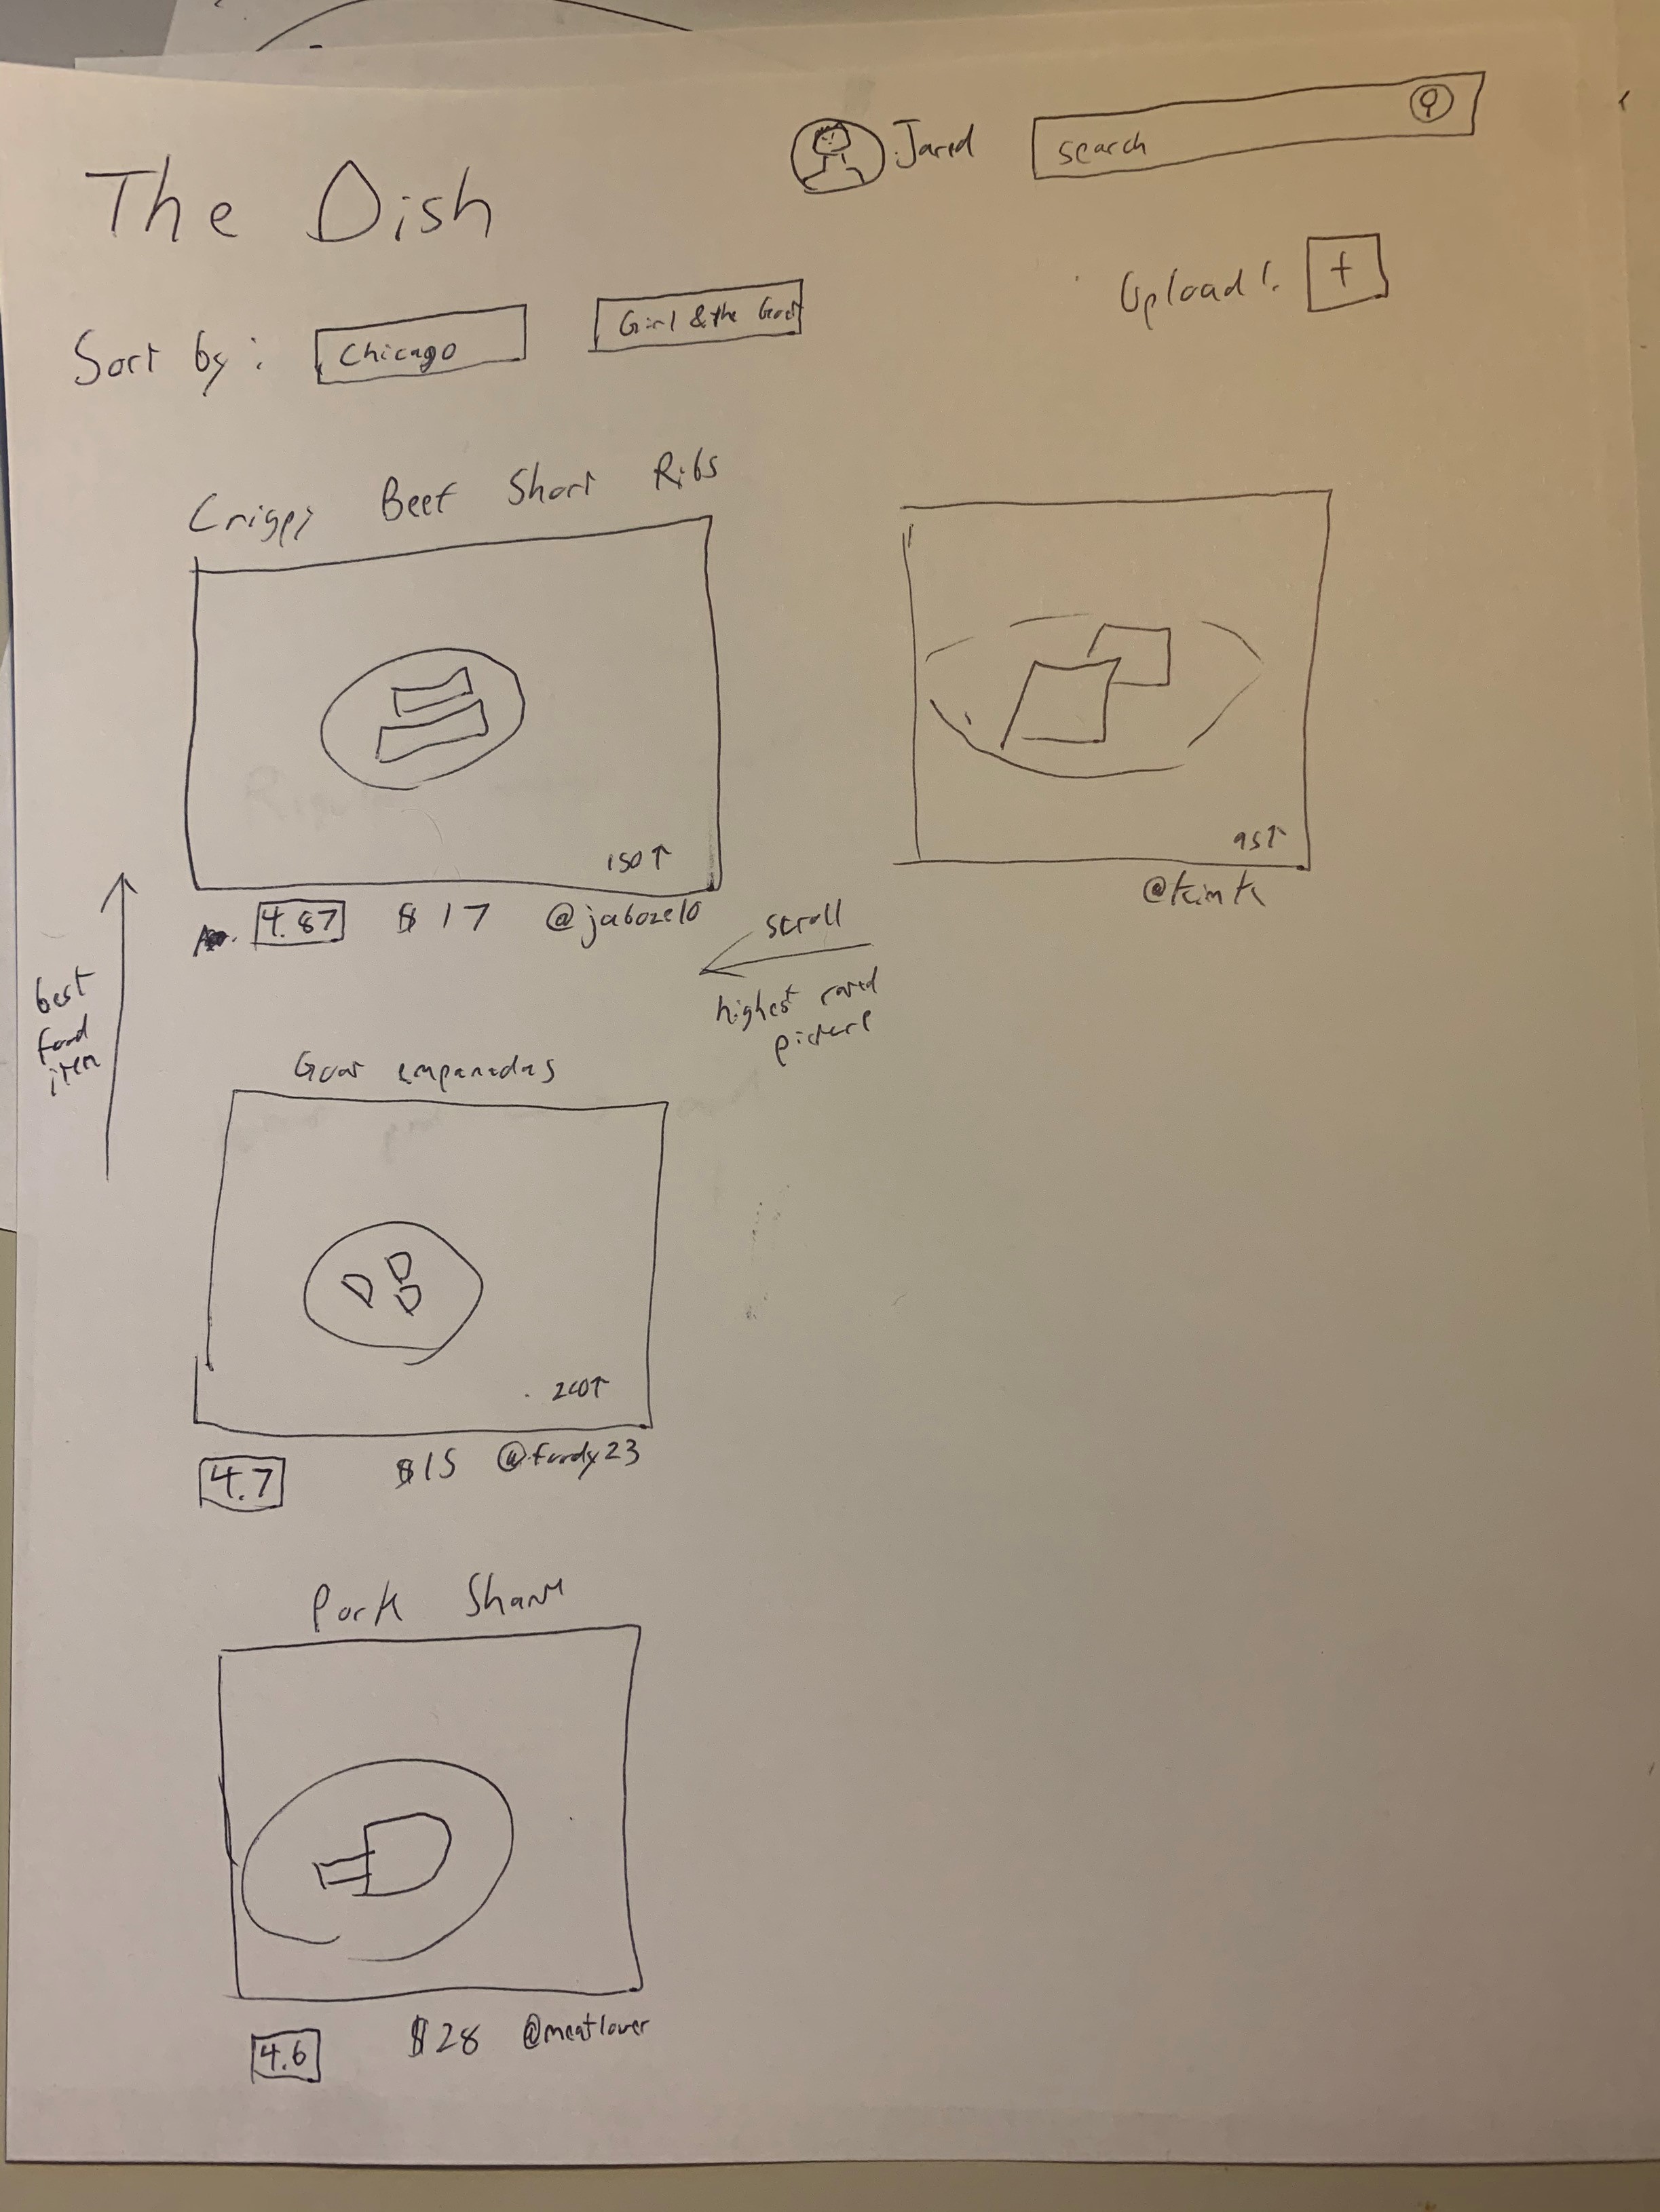 The Dish
Jared
search
Upload!
+
Sort by:
Chicago
Girl & the Goat
Crispy Beef Short Ribs
150↑
4.87 $17 @jabozelo
95↑
@kimk
scroll
highest rated
picture
best
food
item
Goat empanadas
200↑
4.7 $15 @foody23
Pork Shank
4.6 $28 @meatlover